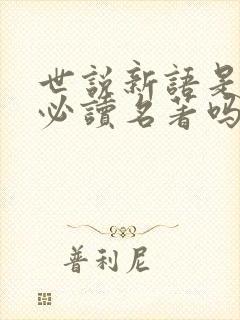 世説新語是
必讀名著嗎
普利尼